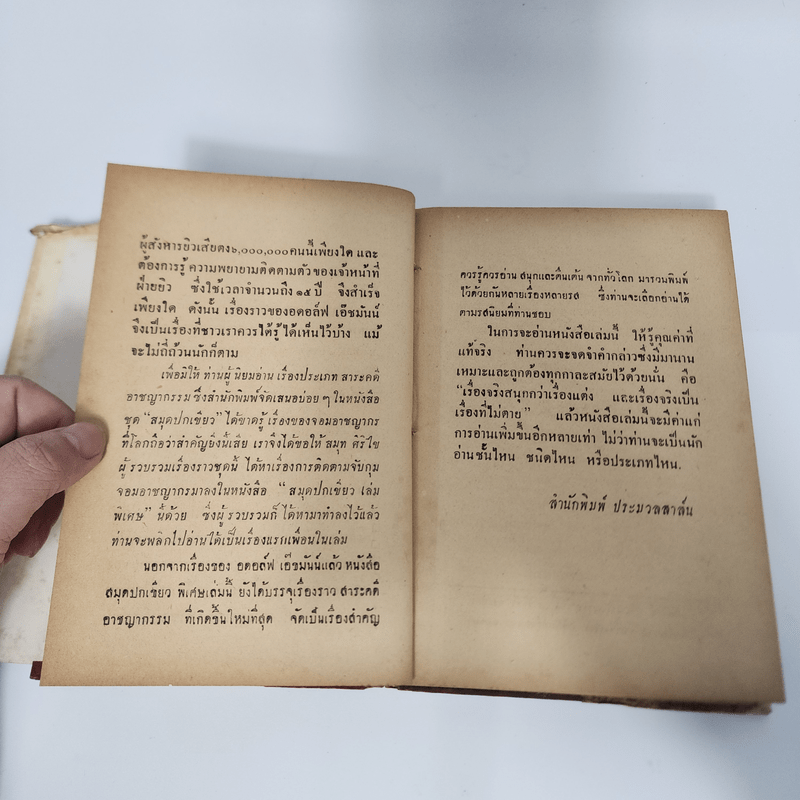 ผู้สังหารยิวเสียตง๖,๐๐๐,๐๐๐คนนี้เพียงใด และ
ต้องการรู้ ความพยายามติดตามตัว ของเจ้าหน้าที่
ฝ่ายยิว ซึ่งใช้เวลาจำนวนถึง ๑๕ ปี จึงสำเร็จ
เพียงใด ดังนั้น เรื่องราวของอดอล์ฟ เอ๊ชมันน์
จึงเป็นเรื่องที่ชาวเราควรได้รู้ ได้เห็นไว้บ้าง แม้
จะไม่ถี่ถ้วนนักก็ตาม
เพื่อมิให้ ท่านผู้ นิยมอ่าน เรื่องประเภท สาระคดี
อาชญากรรม ซึ่งสำนักพิมพ์จัดเสนอบ่อย ๆ ในหนังสือ
ชุด “สมุดปกเขียว” ได้ขาดรู้ เรื่องของจอมอาชญากร
ที่โลกถือว่าสำคัญยิ่งนี้เสีย เราจึงได้ขอให้ สมุท ศิริไข
ผู้ รวบรวมเรื่องราวชุดนี้ ได้หาเรื่องการติดตามจับกุม
จอมอาชญากรมาลงในหนังสือ “สมุดปกเขียว เล่ม
พิเศษ” นี้ด้วย ซึ่งผู้ รวบรวมก็ ได้หามาทำลงไว้แล้ว
ท่านจะพลิกไปอ่านได้เป็นเรื่องแรกเพื่อนในเล่ม
นอกจากเรื่องของ อดอล์ฟ เอ๊ชมันน์แล้ว หนังสือ
สมุดปกเขียว พิเศษเล่มนี้ ยังได้บรรจุเรื่องราว สาระคดี
อาชญากรรม ที่เกิดขึ้นใหม่ที่สุด จัดเป็นเรื่องสำคัญ
ควรรู้ควรอ่าน สนุกและตื่นเต้น จากทั่วโลก มารวมพิมพ์
ไว้ด้วยกันหลายเรื่องหลายรส ซึ่งท่านจะเลือกอ่านได้
ตามรสนิยมที่ท่านชอบ
ในการจะอ่านหนังสือเล่มนี้ ให้รู้คุณค่าที่
แท้จริง ท่านควรจะจดจำคำกล่าวซึ่งมีมานาน
เหมาะและถูกต้องทุกกาละสมัยไว้ด้วยนั้น คือ
“เรื่องจริงสนุกกว่าเรื่องแต่ง และเรื่องจริงเป็น
เรื่องที่ไม่ตาย” แล้วหนังสือเล่มนี้จะมีค่าแก่
การอ่านเพิ่มขึ้นอีกหลายเท่า ไม่ว่าท่านจะเป็นนัก
อ่านชั้นไหน ชนิดไหน หรือประเภทไหน.
สำนักพิมพ์ ประมวลสาส์น